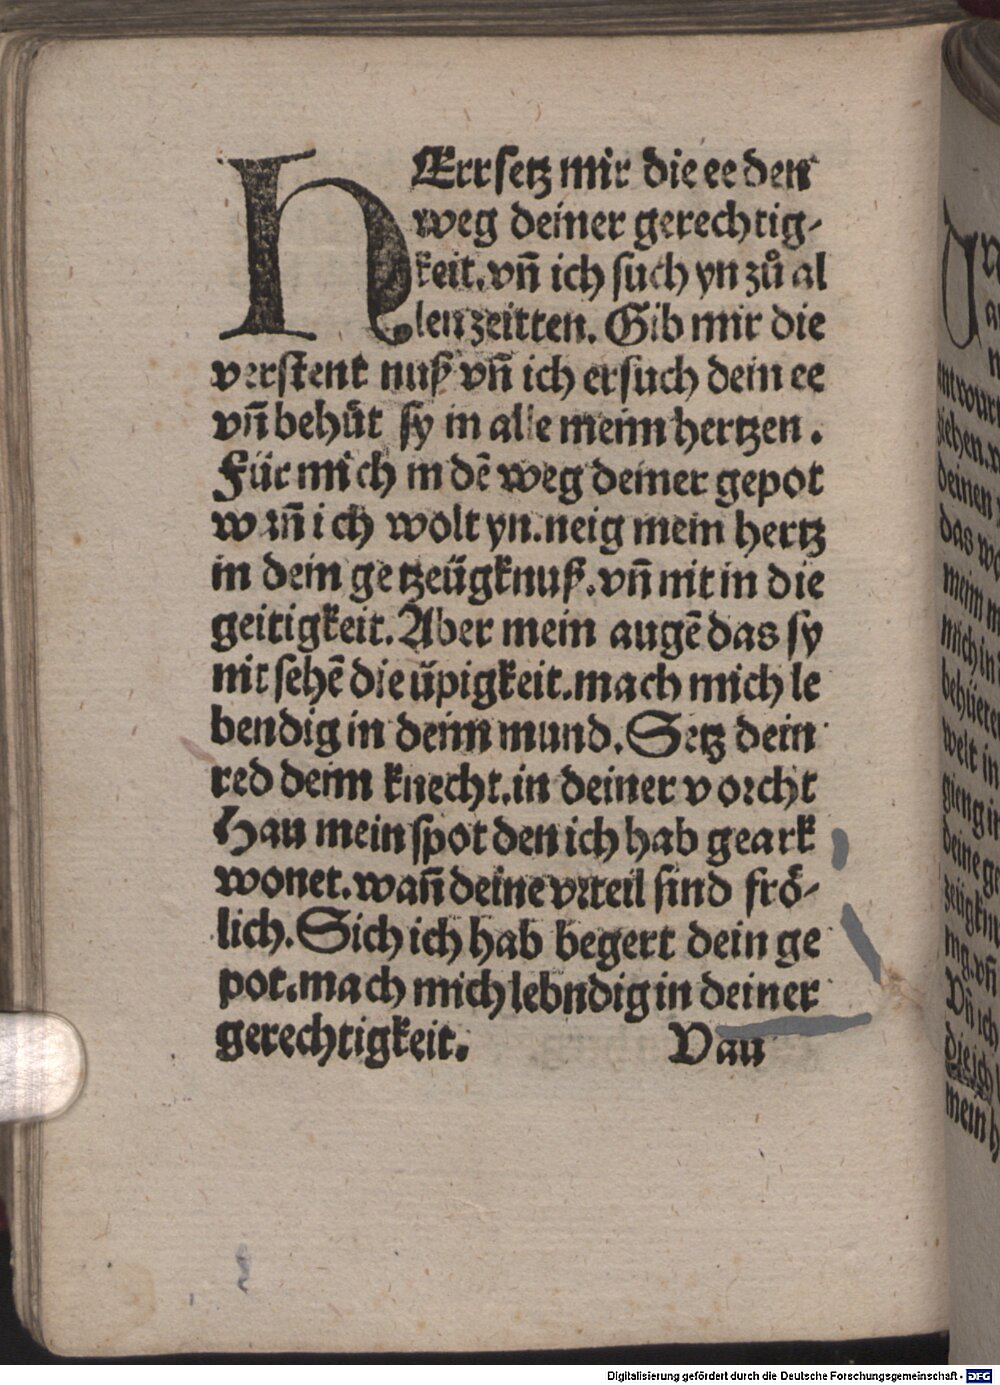 HErr setz mir die ee den
weg deiner gerechtig-
keit. vn̄ ich such yn zů al
len zeitten. Gib mir die
verstent nuß vn̄ ich ersuch dein ee
vn̄ behüt sy in alle meinn hertzen.
Für mich in dē weg deiner gepot
wan̄ ich wolt yn. neig mein hertz
in dein getzeügknuß. vn̄ nit in die
geitigkeit. Aber mein augē das sy
nit sehē die üpigkeit. mach mich le
bendig in deinn mund. Setz dein
red deinn knecht. in deiner vorcht
Hau mein spot den ich hab geark
wonet. wan̄ deine vrteil sind frö-
lich. Sich ich hab begert dein ge
pot. mach mich lebndig in deiner
gerechtigkeit. Vau
Digitalisierung gefördert durch die Deutsche Forschungsgemeinschaft - DFG